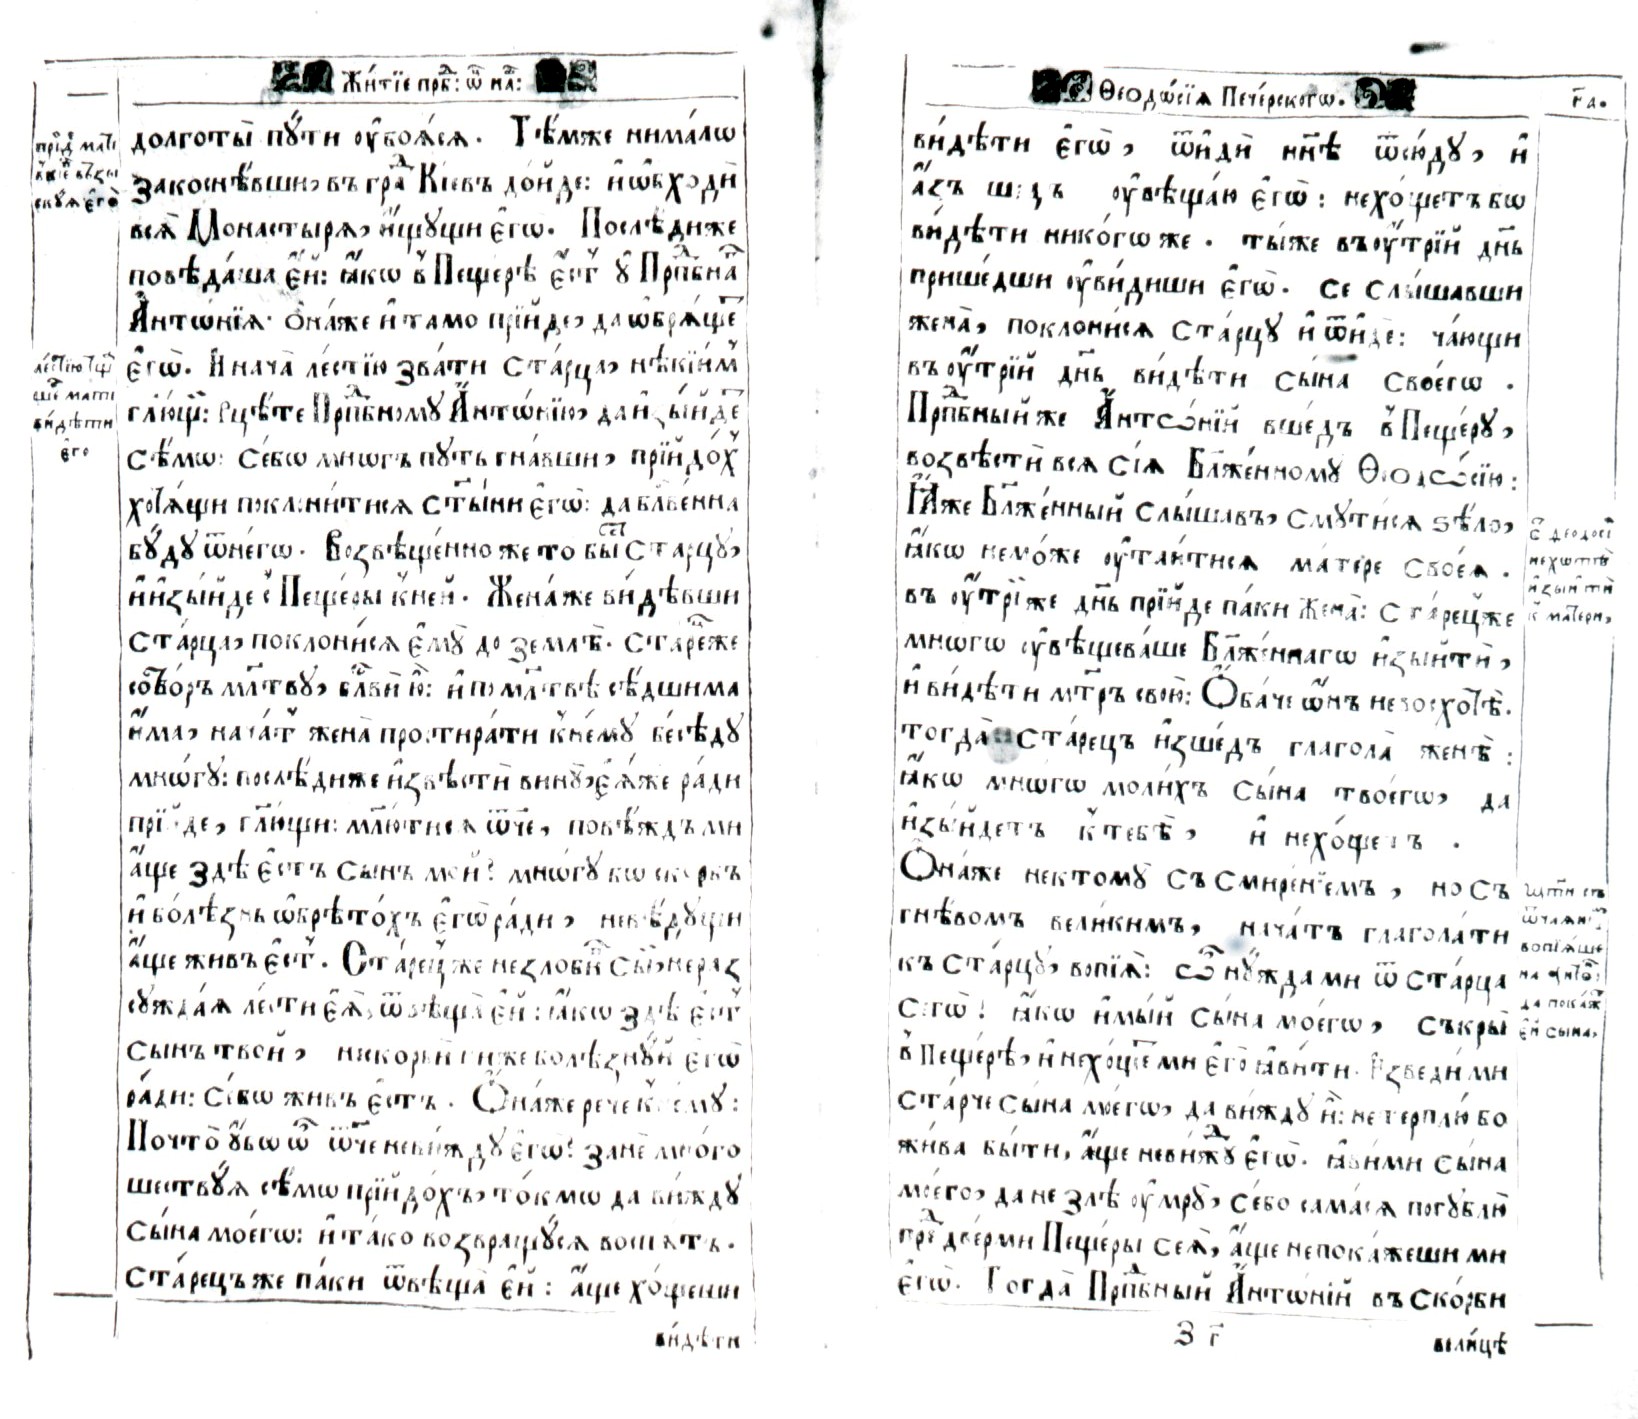 Жи́тїе прп҇б: ѿ на҇:
прїи҇д мт҃и
въ Кі́евъ възы
скꙋя є҆го̀
долготы̀ пꙋтѝ ᲂу҆боѧ́сѧ. Тѣ́мже нима́лѡ
закоснѣ́вши, въ гра҇д Кі́евъ до́йде: и҆ ѡ҆бходѝ
всѧ̀ Монастырѧ̀, и҆́щꙋщи є҆гѡ̀. Послѣди́же
повѣ́даша є҆́й: ꙗ҆́кѡ в̾ Пеще́рѣ є҆́ст̾ ᲂу҆ Прп҇бнагѡ
А҆нтѡ́нїѧ. Ѻ҆на́же и҆ та́мо прїи́де, да ѡ҆брѧ́щет
є҆гѡ̀. И҆ нача̀ ле́стїю зва́ти Ста́рца, нѣ́кіим̾
гл҃ющи: Рцѣ́те Прп҇бномꙋ А҆нтѡ́нїю, да и҆зы́йдет
сѣ́мѡ: Се́бѡ мнѡ́гъ пꙋть гна́вши, прїйдо́х̾
хотѧ́щи поклони́тисѧ ст҃ы́ни є҆гѡ̀: да блг҇ве́нна
бꙋ́дꙋ ѿнегѡ̀. Возвѣще́нно же то̀ бы́сть Ста́рцꙋ,
и҆ и҆зы́йде с̾ Пеще́ры к̾ не́й. Жена́же ви́дѣвши
Ста́рца, поклони́сѧ є҆мꙋ̀ до землѣ̀. Ста́рецже
сотво́ръ мл҃твꙋ, блг҇вѝ ю҆̀: и҆ по мл҃твѣ сѣ́дшима
и҆́ма, нача́т̾ жена̀ простира́ти к̾ немꙋ̀ бесѣ́дꙋ
мно́гꙋ: послѣ́диже и҆звѣстѝ винꙋ̀, є҆ѧ́же ра́ди
прїи́де, гл҃ющи: млю́тисѧ ѿ҆че, повѣ́ждъ ми
а҆́ще здѣ̀ є҆́стъ сы́нъ мо́й? мнѡ́гꙋ бо ско́рбъ
и҆ болѣ́знь ѡ҆брѣто́хъ є҆гѡ̀ ра́ди, невѣ́дꙋщи
а҆́ще жи́въ є҆́ст̾. Ста́рец̾же незло́бив̾ Сы́й, нераз
сꙋжда́ѧ ле́сти є҆ѧ̀, ѿвѣща̀ є҆́й: ꙗ҆́кѡ здѣ̀ є҆́ст̾
сы́нъ тво́й, нискорбѝ ниже болѣ́знꙋй є҆гѡ̀
ра́ди: Се́бѡ жи́въ є҆́стъ. Ѻ҆на́же рече к̾ немꙋ:
Почто̀ ᲂу҆́бѡ ѡ҆̀ ѿ҆че неви́ждꙋ є҆гѡ̀? занѐ мно́го
ше́ствꙋѧ сѣ́мѡ прїйдо́хъ, то́кмѡ да ви́ждꙋ
сы́на мое́гѡ: и҆ та́ко возвращꙋ́сѧ воспѧ́ть.
Ста́рецъже па́ки ѿвѣща̀ є҆́й: а҆́ще хо́щеши
ви́дѣти
ле́стїю тщ
ше мати
ви́дѣти
є҆го
Ѳеодѡ́сїѧ Пече́рскогѡ.
н҃а.
ви́дѣти є҆гѡ̀, ѿидѝ нн҃ѣ ѿсю́дꙋ, и҆
а҆́зъ ше́дъ ᲂу҆вѣща́ю є҆гѡ̀: нехо́щетъ бѡ
ви́дѣти нико́гѡже. ты́же въ ᲂу҆́трїй дн҃ь
прише́дши ᲂу҆ви́диши є҆гѡ̀. се слы́шавши
жена̀, поклони́сѧ ста́рцꙋ и҆ ѿи́де: ча́ющи
въ ᲂу҆́трїй дн҃ь ви́дѣти сы́на своегѡ.
Прп҇бный же А҆нтѡ́нїй вше́дъ в̾ Пеще́рꙋ,
возвѣстѝ всѧ сїѧ̀ Бл҃же́нномꙋ Ѳеодѡ́сїю:
Ꙗ҆́же Бл҃же́нный слы́шавъ, смꙋти́сѧ ѕѣлѡ̀,
ꙗ҆́кѡ немо́же ᲂу҆таи́тисѧ ма́тере своеѧ̀.
въ ᲂу҆́трїже дн҃ь прїи́де па́ки жена̀: ста́рец̾же
мно́гѡ ᲂу҆вѣщева́ше Бл҃же́ннагѡ и҆зы́йти,
и҆ ви́дѣти мт҃ръ свою̀: Ѻ҆ба́че ѻ҆́нъ невосхотѣ̀.
тогда̀ ста́рецъ и҆зше́дъ глагола̀ женѣ̀:
ꙗ҆́кѡ мнѡ́гѡ моли́хъ сы́на твоегѡ̀, да
и҆зы́йдетъ к̾ тебѣ̀, и҆ нехо́щетъ.
Ѻ҆на́же нектомꙋ̀ съ смире́нїемъ, но съ
гнѣ́вомъ вели́кимъ, нача́тъ глаго́лати
къ ста́рцꙋ, вопїѧ̀: Ѽ нꙋ́жда ми ѿ ста́рца
сегѡ̀! ꙗ҆́кѡ и҆мы́й сы́на моегѡ̀, съкры̀
в̾ Пеще́рѣ, и҆ нехо́щет ми є҆го̀ ꙗ҆ви́ти. И҆зведи́ ми
ста́рче сы́на моегѡ̀, да ви́ждꙋ и҆̀: не терплю́ бо
жи́ва бы́ти, а҆́ще неви́ждꙋ є҆гѡ̀. ꙗ҆ви́ ми сы́на
моего̀, да не злѣ̀ ᲂу҆мрꙋ̀, се́бо сама́сѧ погꙋблю̀
пре҇д две́рми Пеще́ры сеѧ̀, а҆́ще непока́жеши ми
є҆гѡ̀. Тогда̀ Прп҇бный А҆нтѡ́нїй въ ско́рби
З г҃
вели́цѣ
С҃ Ѳеодосі
нехотѣ
и҆зыйти
к̾ матери,
мт҃и съ
ѿчаѧнїя
вопїѧ́ше
на А҆нтѡ:
да покаж̾
є҆́й сына,